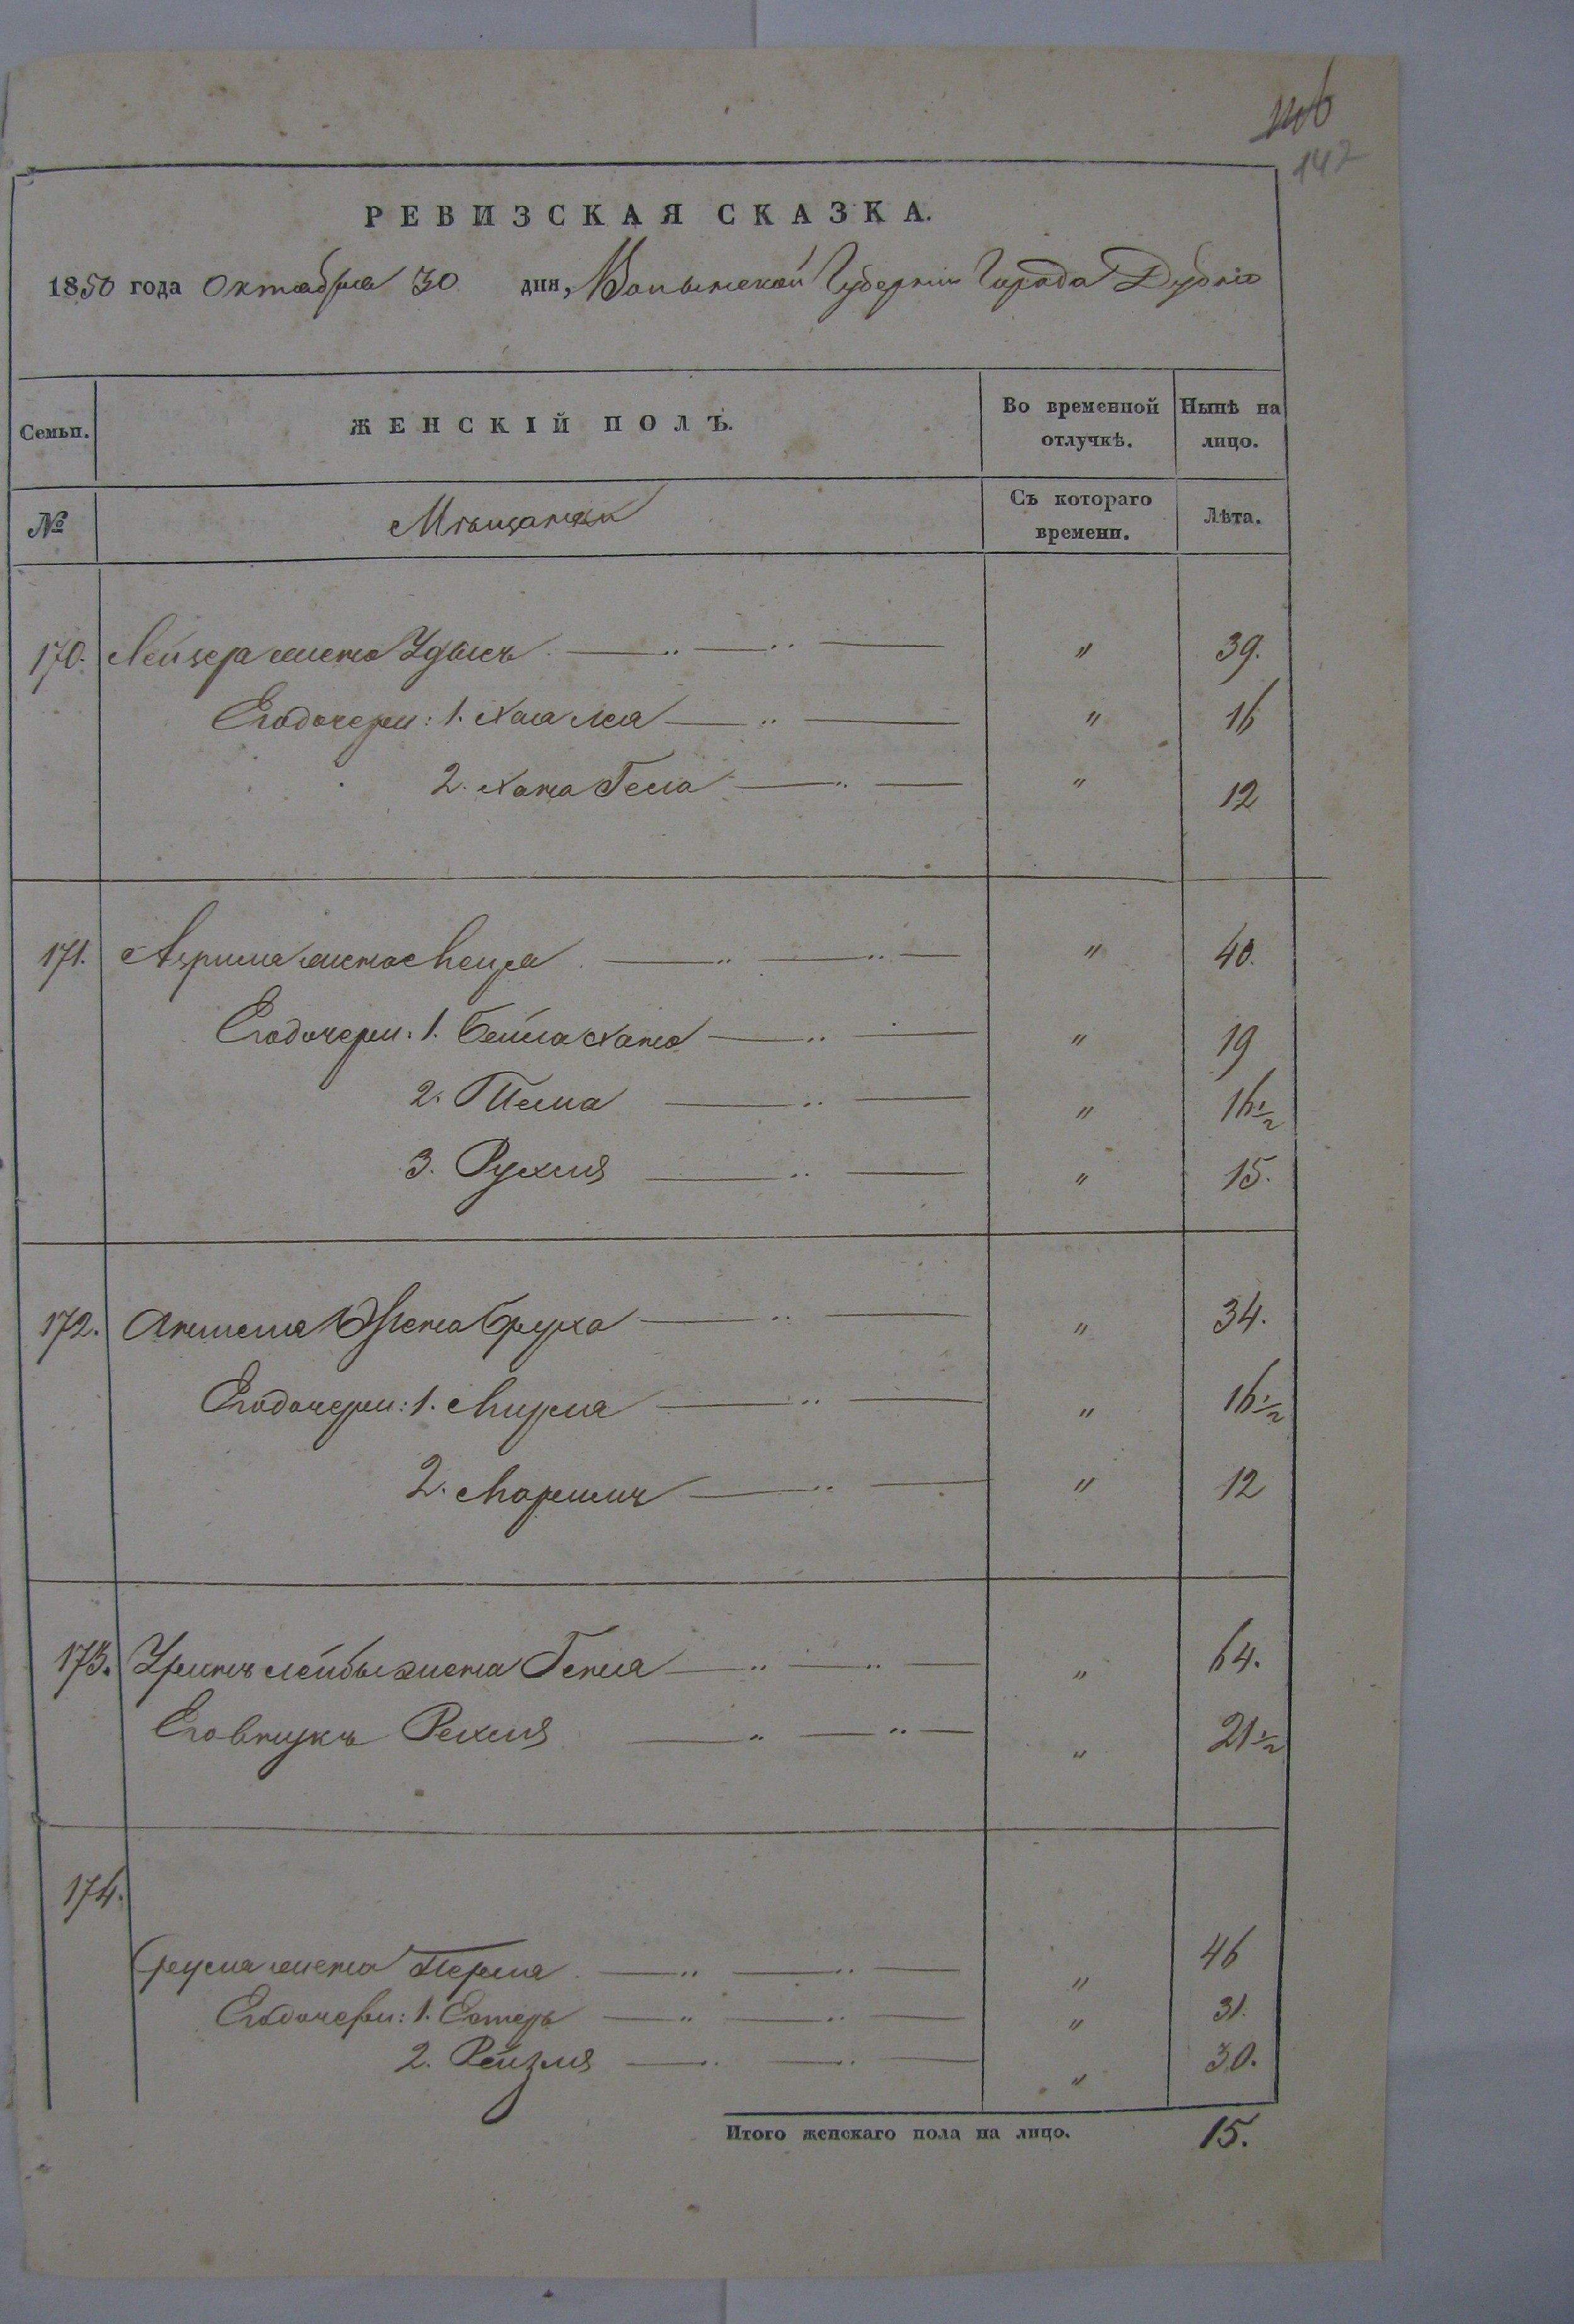 142
РЕВИЗСКАЯ СКАЗКА.
1850 года Октября 30 дня, Волынской Губернии Города Дубна
Семьи. ЖЕНСКІЙ ПОЛЪ. Во временной отлучкѣ. Нынѣ на лицо.
№ Мѣщанки Съ котораго времени. Лѣта.
170. Лейзера жена Удысь " 39.
Его дочери: 1. Хая Лея " 16
2. Хана Гела " 12
171. жена " 40.
Его дочери: 1. Бейла Хана " 19
2. " 16½
3. Рухля " 15.
172. Аншеля жена Бруха " 34.
Его дочери: 1. Мирля " 16½
2. " 12
173. Лейбы жена Генля " 64.
Его внука Рехля " 21½
174.
Сруля жена Перля " 46
Его дочери: 1. Естеръ " 31.
2. Рейзля " 30.
Итого женскаго пола на лицо. 15.